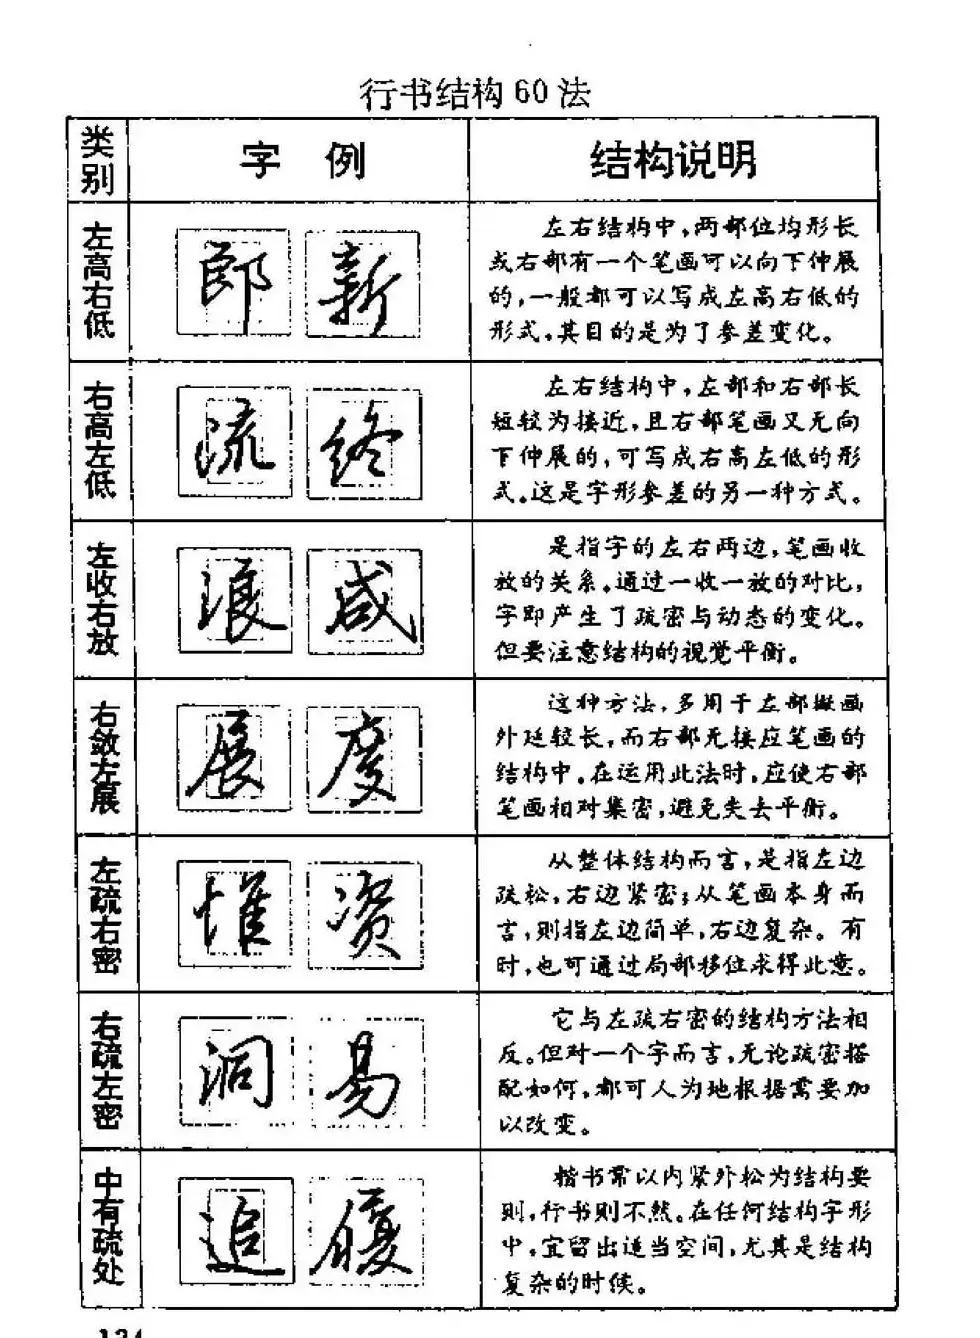 行书结构60法
类别
字 例
结构说明
左高右低
郎 新
左右结构中,两部位均形长
或右部有一个笔画可以向下伸展
的,一般都可以写成左高右低的
形式。其目的是为了参差变化。
右高左低
流 终
左右结构中,左部和右部长
短较为接近,且右部笔画又无向
下伸展的,可写成右高左低的形
式。这是字形参差的另一种方式。
左收右放
浪 咸
是指字的左右两边,笔画收
放的关系。通过一收一放的对比,
字即产生了疏密与动态的变化。
但要注意结构的视觉平衡。
右敛左展
展 度
这种方法,多用于左部撇画
外延较长,而右部无接应笔画的
结构中。在运用此法时,应使右部
笔画相对集密,避免失去平衡。
左疏右密
惟 资
从整体结构而言,是指左边
疏松,右边紧密;从笔画本身而
言,则指左边简单,右边复杂。有
时,也可通过局部移位求得此意。
右疏左密
洞 易
它与左疏右密的结构方法相
反。但对一个字而言,无论疏密搭
配如何,都可人为地根据需要加
以改变。
中有疏处
追 履
楷书常以内紧外松为结构要
则,行书则不然。在任何结构字形
中,宜留出适当空间,尤其是结构
复杂的时候。